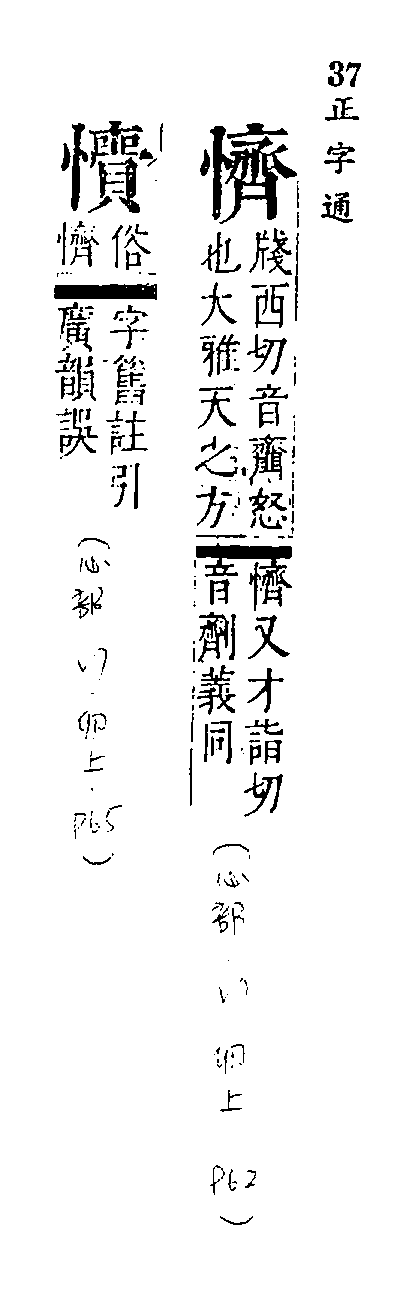 37正字通
懠
牋西切音齎怒
也大雅天之方
懠又才詣切
音劑義同
(心部 卯上 P62)
俗
懠
字舊註引
廣韻誤
(心部 卯上 P65)